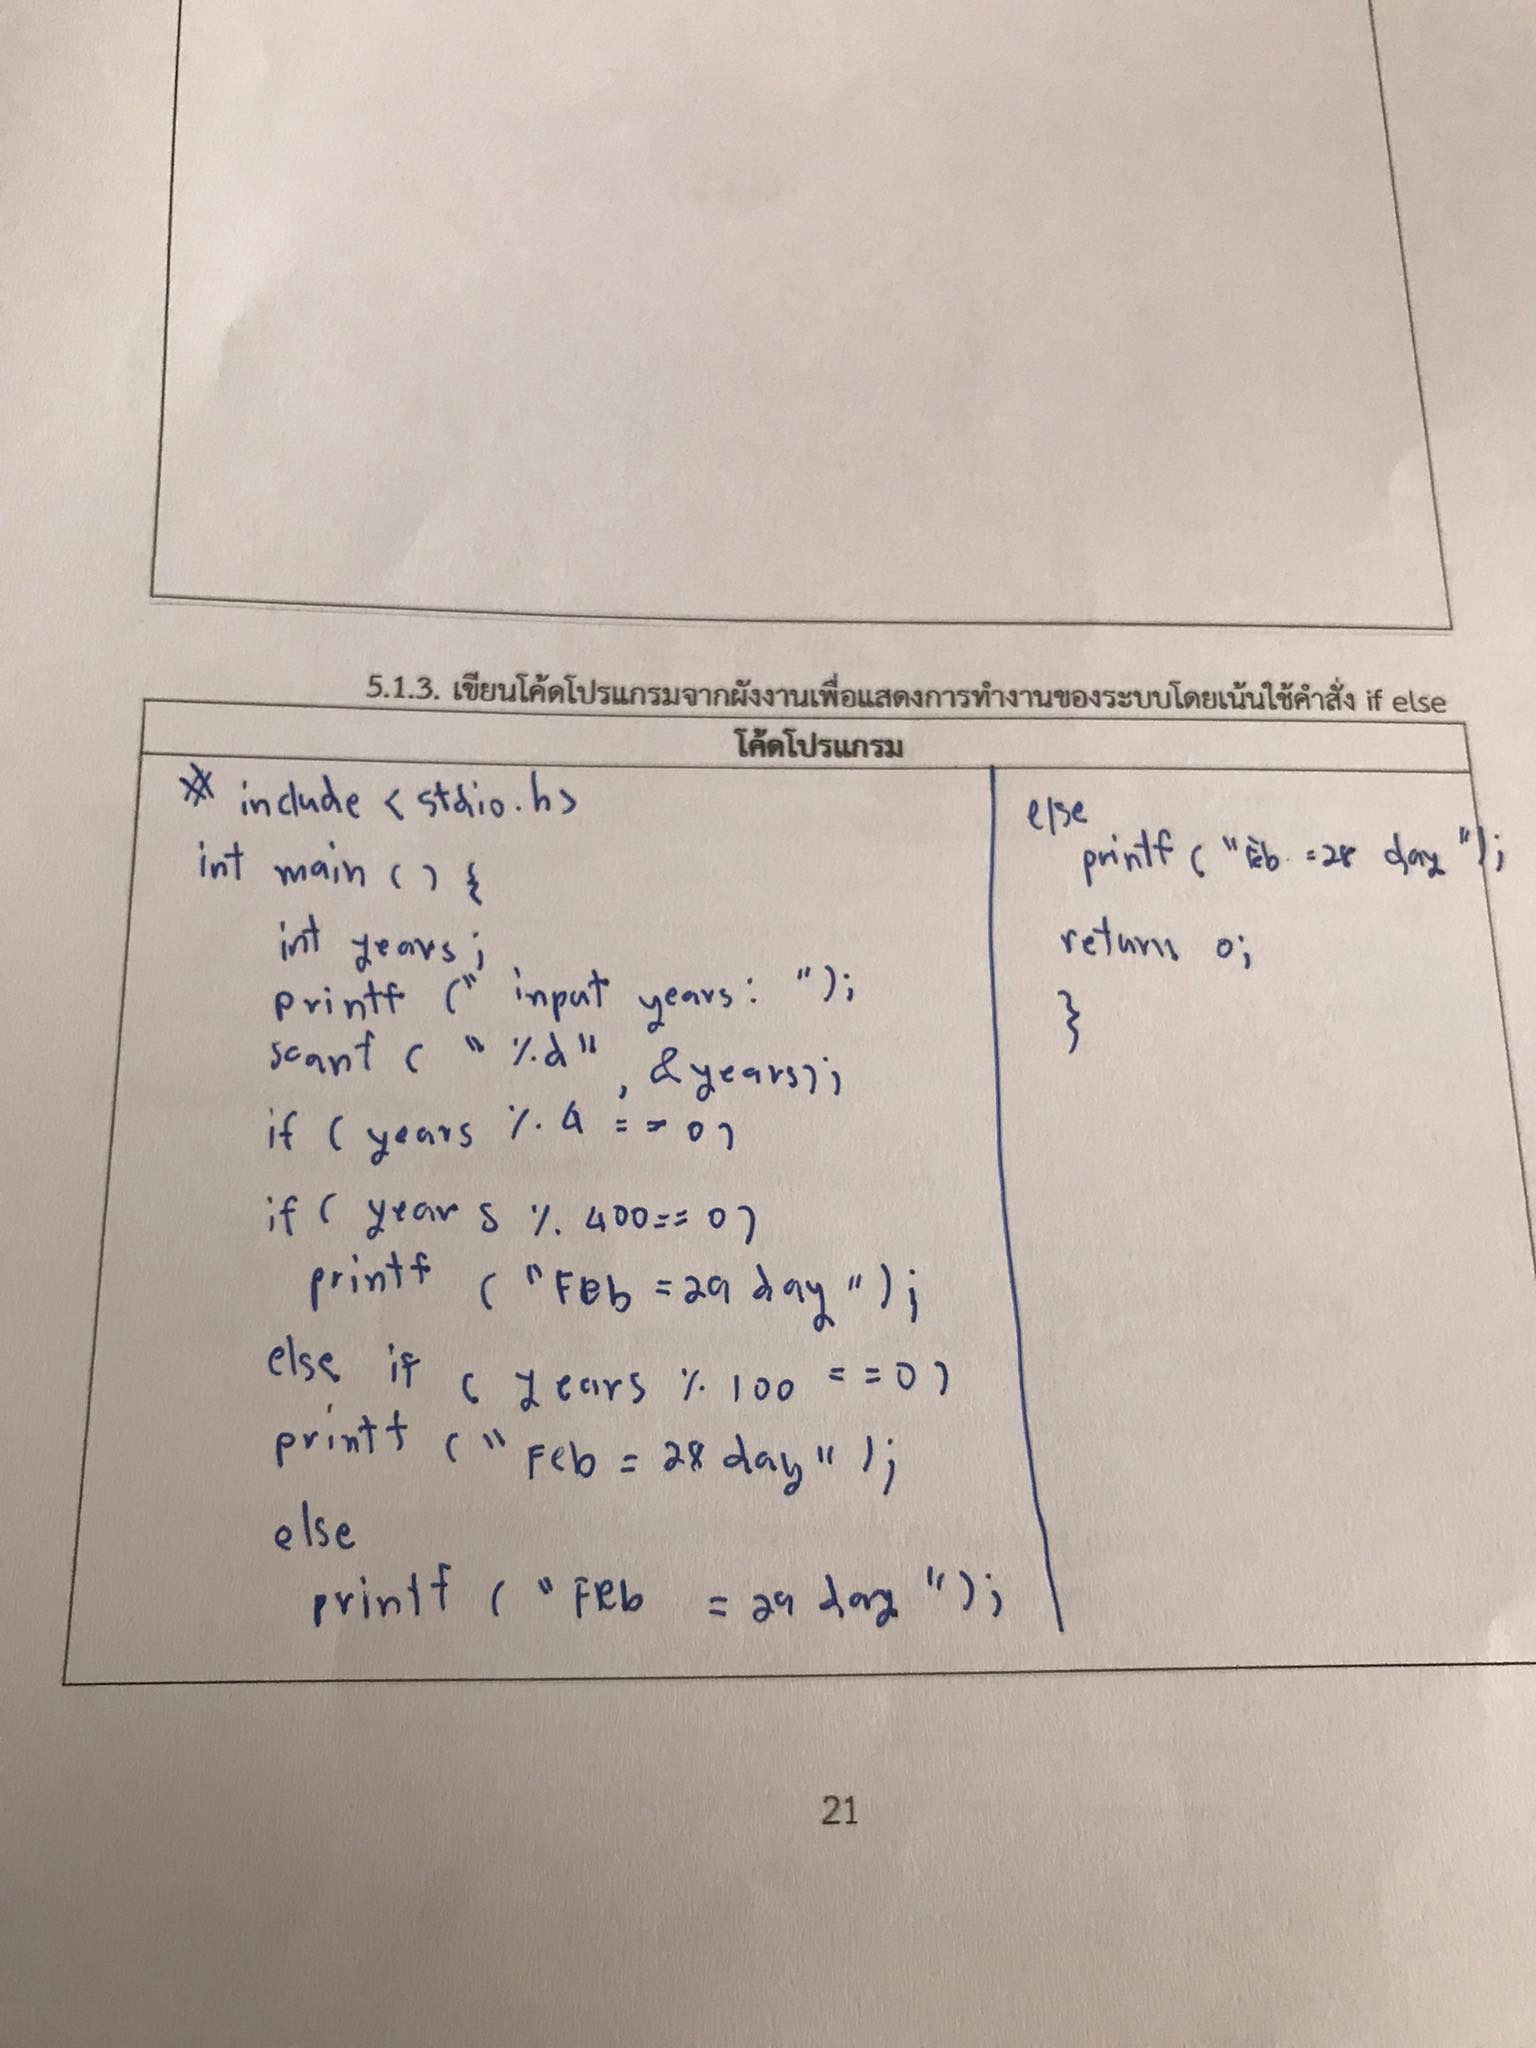 5.1.3. เขียนโค้ดโปรแกรมจากผังงานเพื่อแสดงการทำงานของระบบโดยเน้นใช้คำสั่ง if else
โค้ดโปรแกรม
# include < stdio.h>
int main () {
int years;
printf (" input years: ");
scanf ( " %d" , &years);
if ( years % 4 == 0)
if ( years % 400== 0)
printf ("Feb = 29 day ");
else if ( years % 100 == 0)
printf (" Feb = 28 day" );
else
printf ( "Feb = 29 day ");
else
printf ( "Feb = 28 day ");
return 0;
}
21